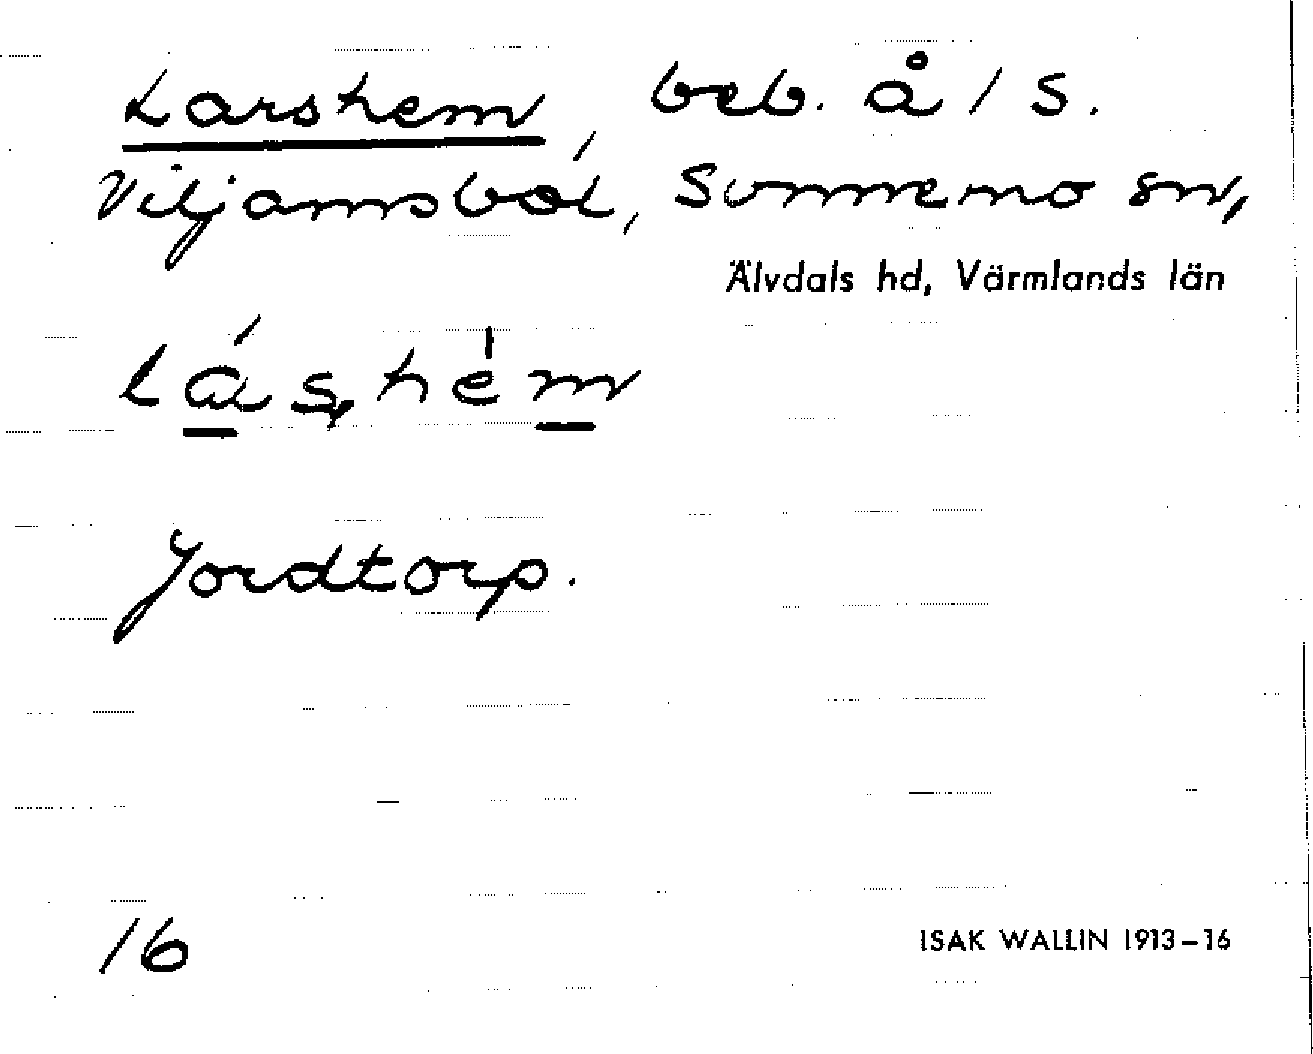 Larshem, beb. å / S.
Viljamsbol, Sunnemo sn,
Älvdals hd, Värmlands län
lá̱s̡ hém̱
Jordtorp.
16
ISAK WALLIN 1913–16